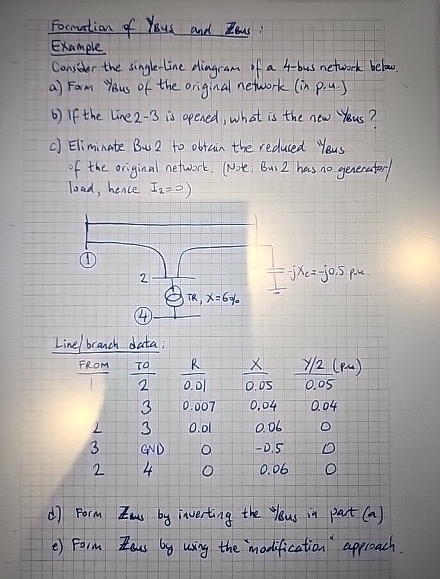 Formation of YBUS and ZBUS :
Example
Consider the single-line diagram of a 4-bus network below.
a) Form YBUS of the original network (in p.u.)
b) If the Line 2-3 is opened, what is the new YBUS ?
c) Eliminate Bus 2 to obtain the reduced YBUS
of the original network. (Note: Bus 2 has no generator/
load, hence I2=0)
1
2
-jXc=-j0.5 p.u.
TR, X=6%
4
Line/branch data:
FROM TO R X Y/2 (p.u)
1 2 0.01 0.05 0.05
3 0.007 0.04 0.04
2 3 0.01 0.06 0
3 GND 0 -0.5 0
2 4 0 0.06 0
d) Form ZBUS by inverting the YBUS in part (a)
e) Form ZBUS by using the "modification" approach.